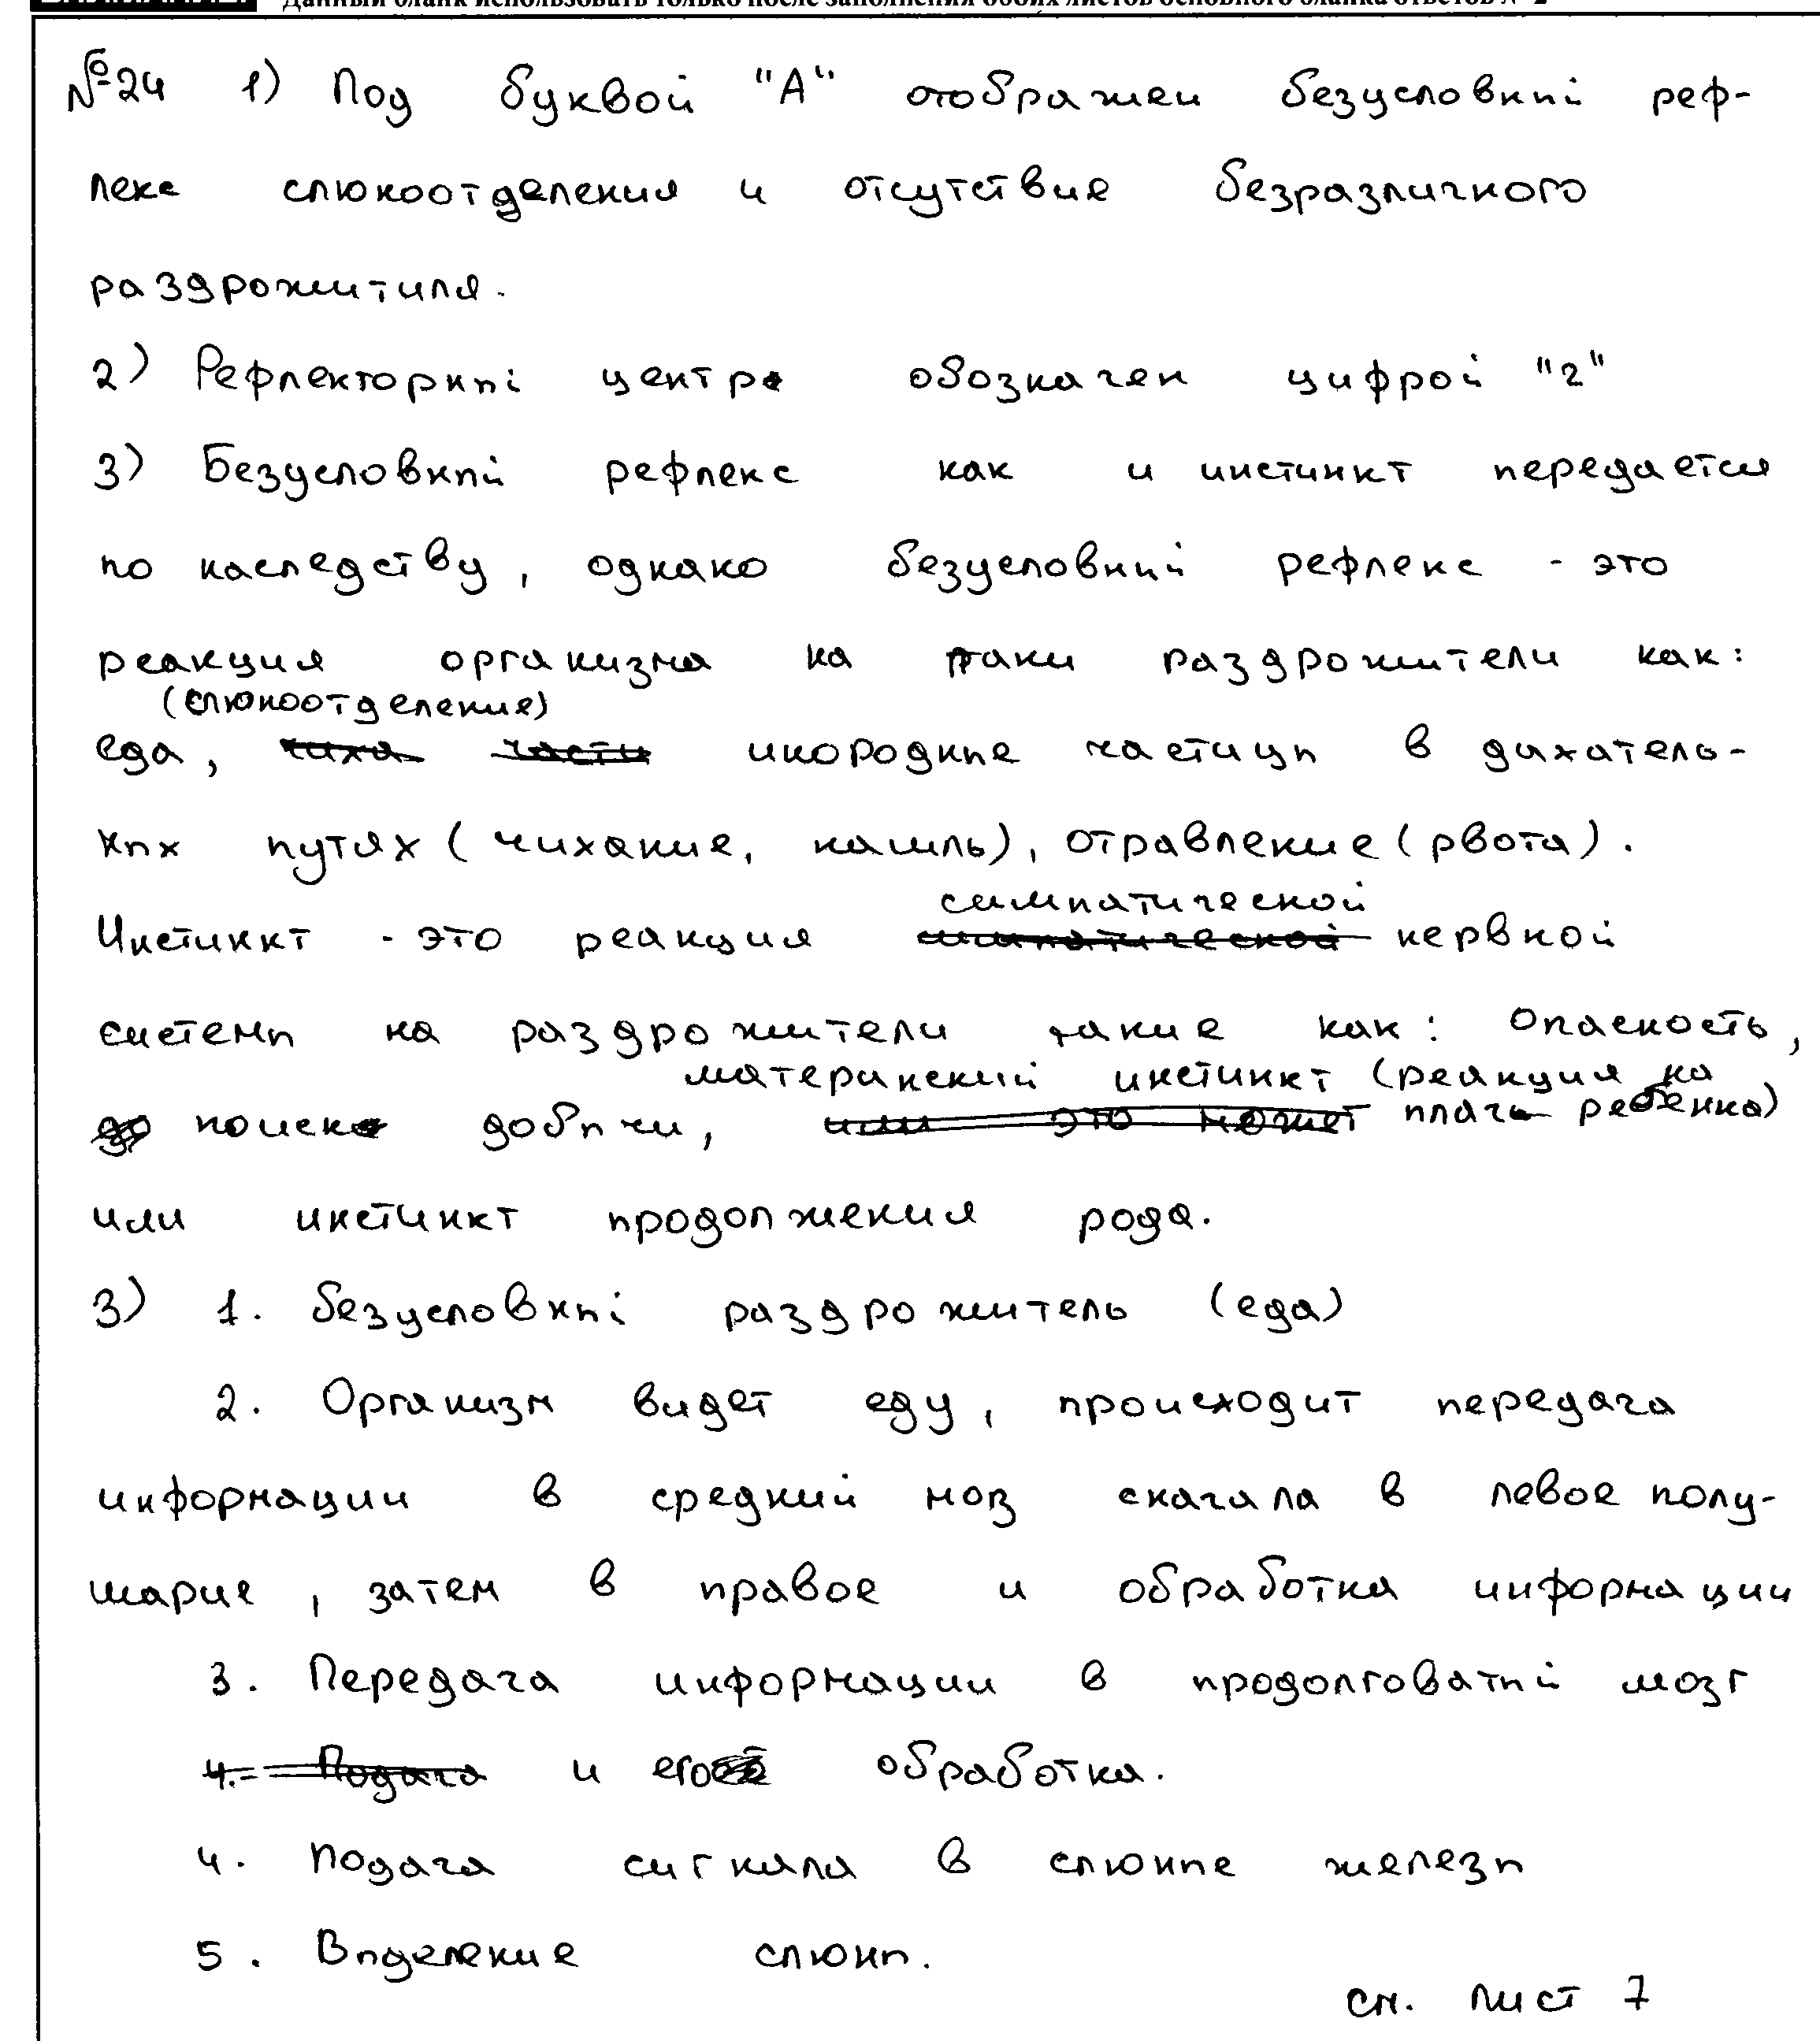 Данный бланк использовать только после заполнения обоих листов основного бланка ответов № 2
№24 1) Под буквой "А" отображен безусловный реф-
лекс слюноотделения и отсутствие безразличного
раздрожитиля.
2) Рефлекторный центр обозначен цифрой "2"
3) Безусловный рефлекс как и инстинкт передается
по наследству, однако безусловный рефлекс - это
реакция организма на таки раздрожители как:
(слюноотделение)
еда, чиха части инородные частицы в дыхатель-
ных путях (чихание, кашль), отравление (рвота).
симпатической
Инстинкт - это реакция симпатической нервной
системы на раздрожители такие как: опасность,
материнский инстинкт (реакция на
до поиск добычи, или это может плач ребенка)
или инстинкт продолжения рода.
3) 1. безусловный раздрожитель (еда)
2. Организм видет еду, происходит передача
информации в средний мозг скачала в левое полу-
шарие, затем в правое и обработка информации
3. Передача информации в продолговатый мозг
4. Подача и его обработка.
4. Подача сигнала в слюнные железы
5. Выделение слюны.
см. лист 7